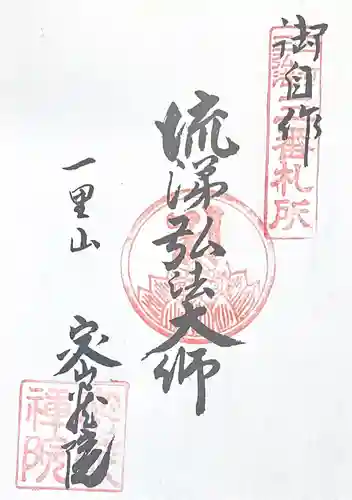 御自作
番札所
流涕弘法大師
一里山
密蔵院
禅院